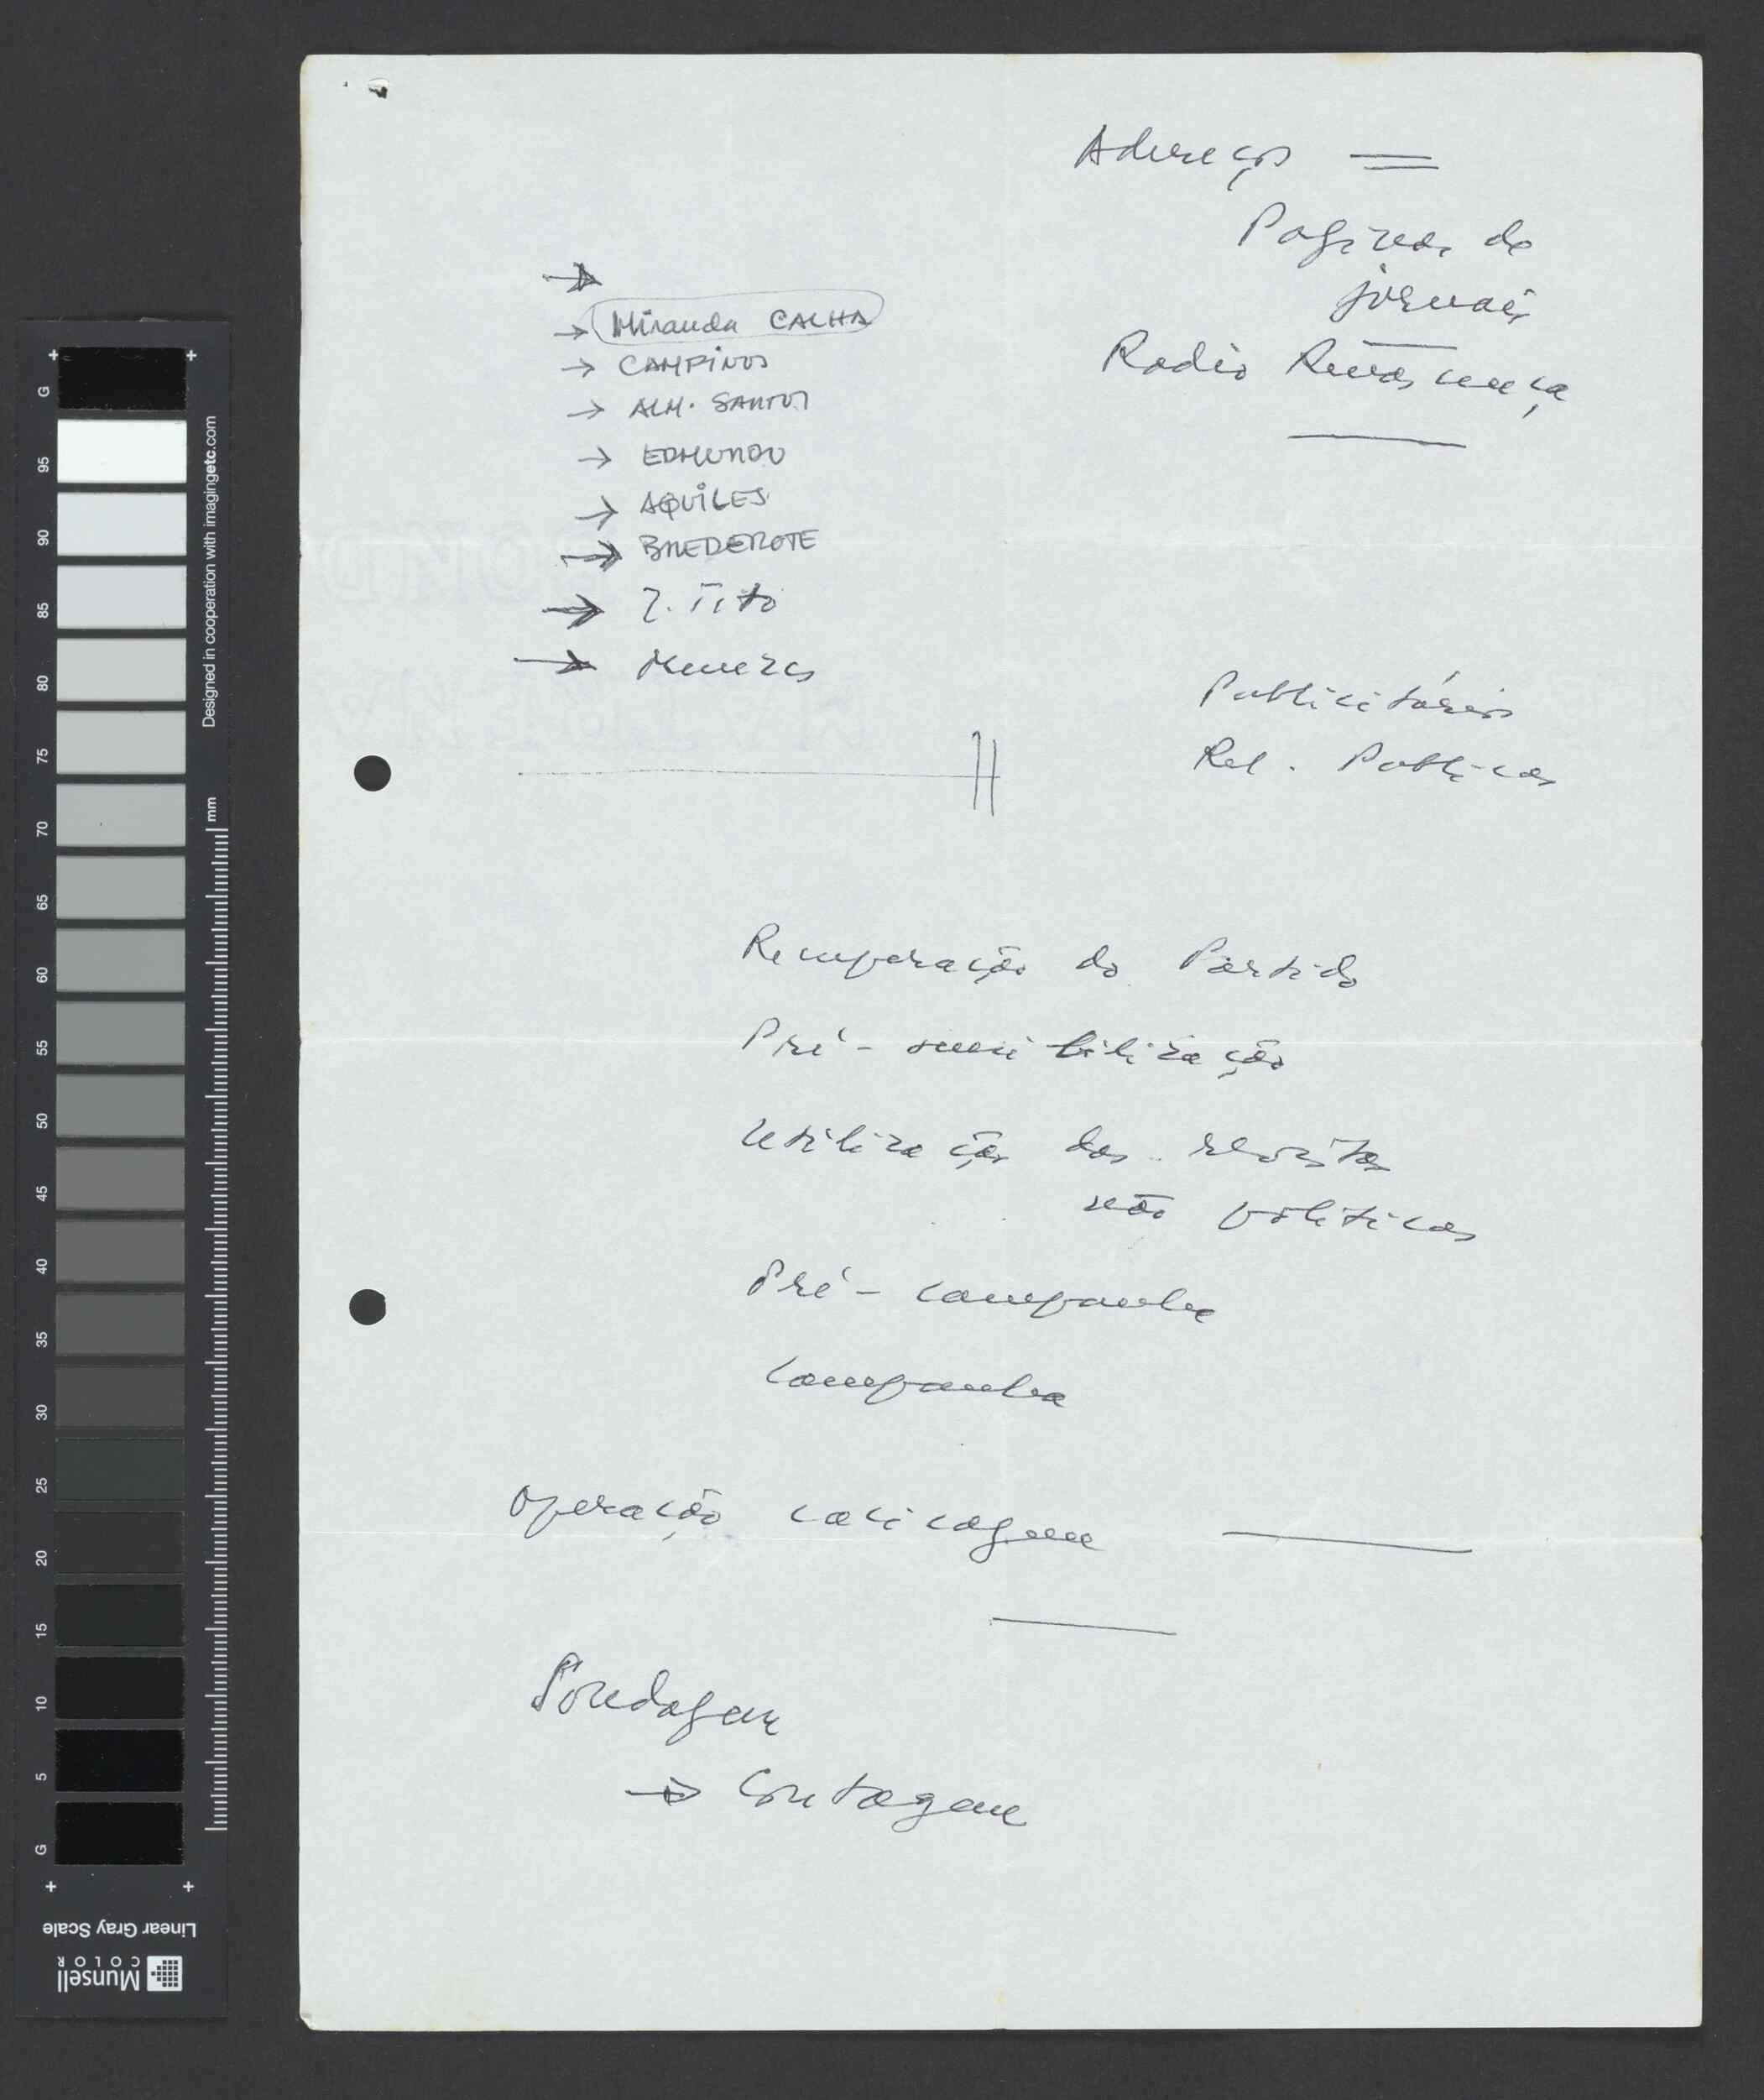 Adereços =
Paginas de
jornais
Radio Renascença
→
→ Miranda CALHA
→ CAMPINOS
→ ALM. SANTOS
→ EDMUNDO
→ AQUILES
→ BREDEROTE
→ Z. Tito
→ Menezes
Publicitários
Rel. Publicas
Recuperação do Partido
Pré-sensibilização
Utilização das revistas
não politicas
Pré-campanha
Campanha
Operação cacicagem
Sondagem
→ Contagem
G
95
90
85
80
75
70
65
60
55
50
45
40
35
30
25
20
15
10
5
G
Designed in cooperation with imagingetc.com
mm
Linear Gray Scale
Munsell
COLOR